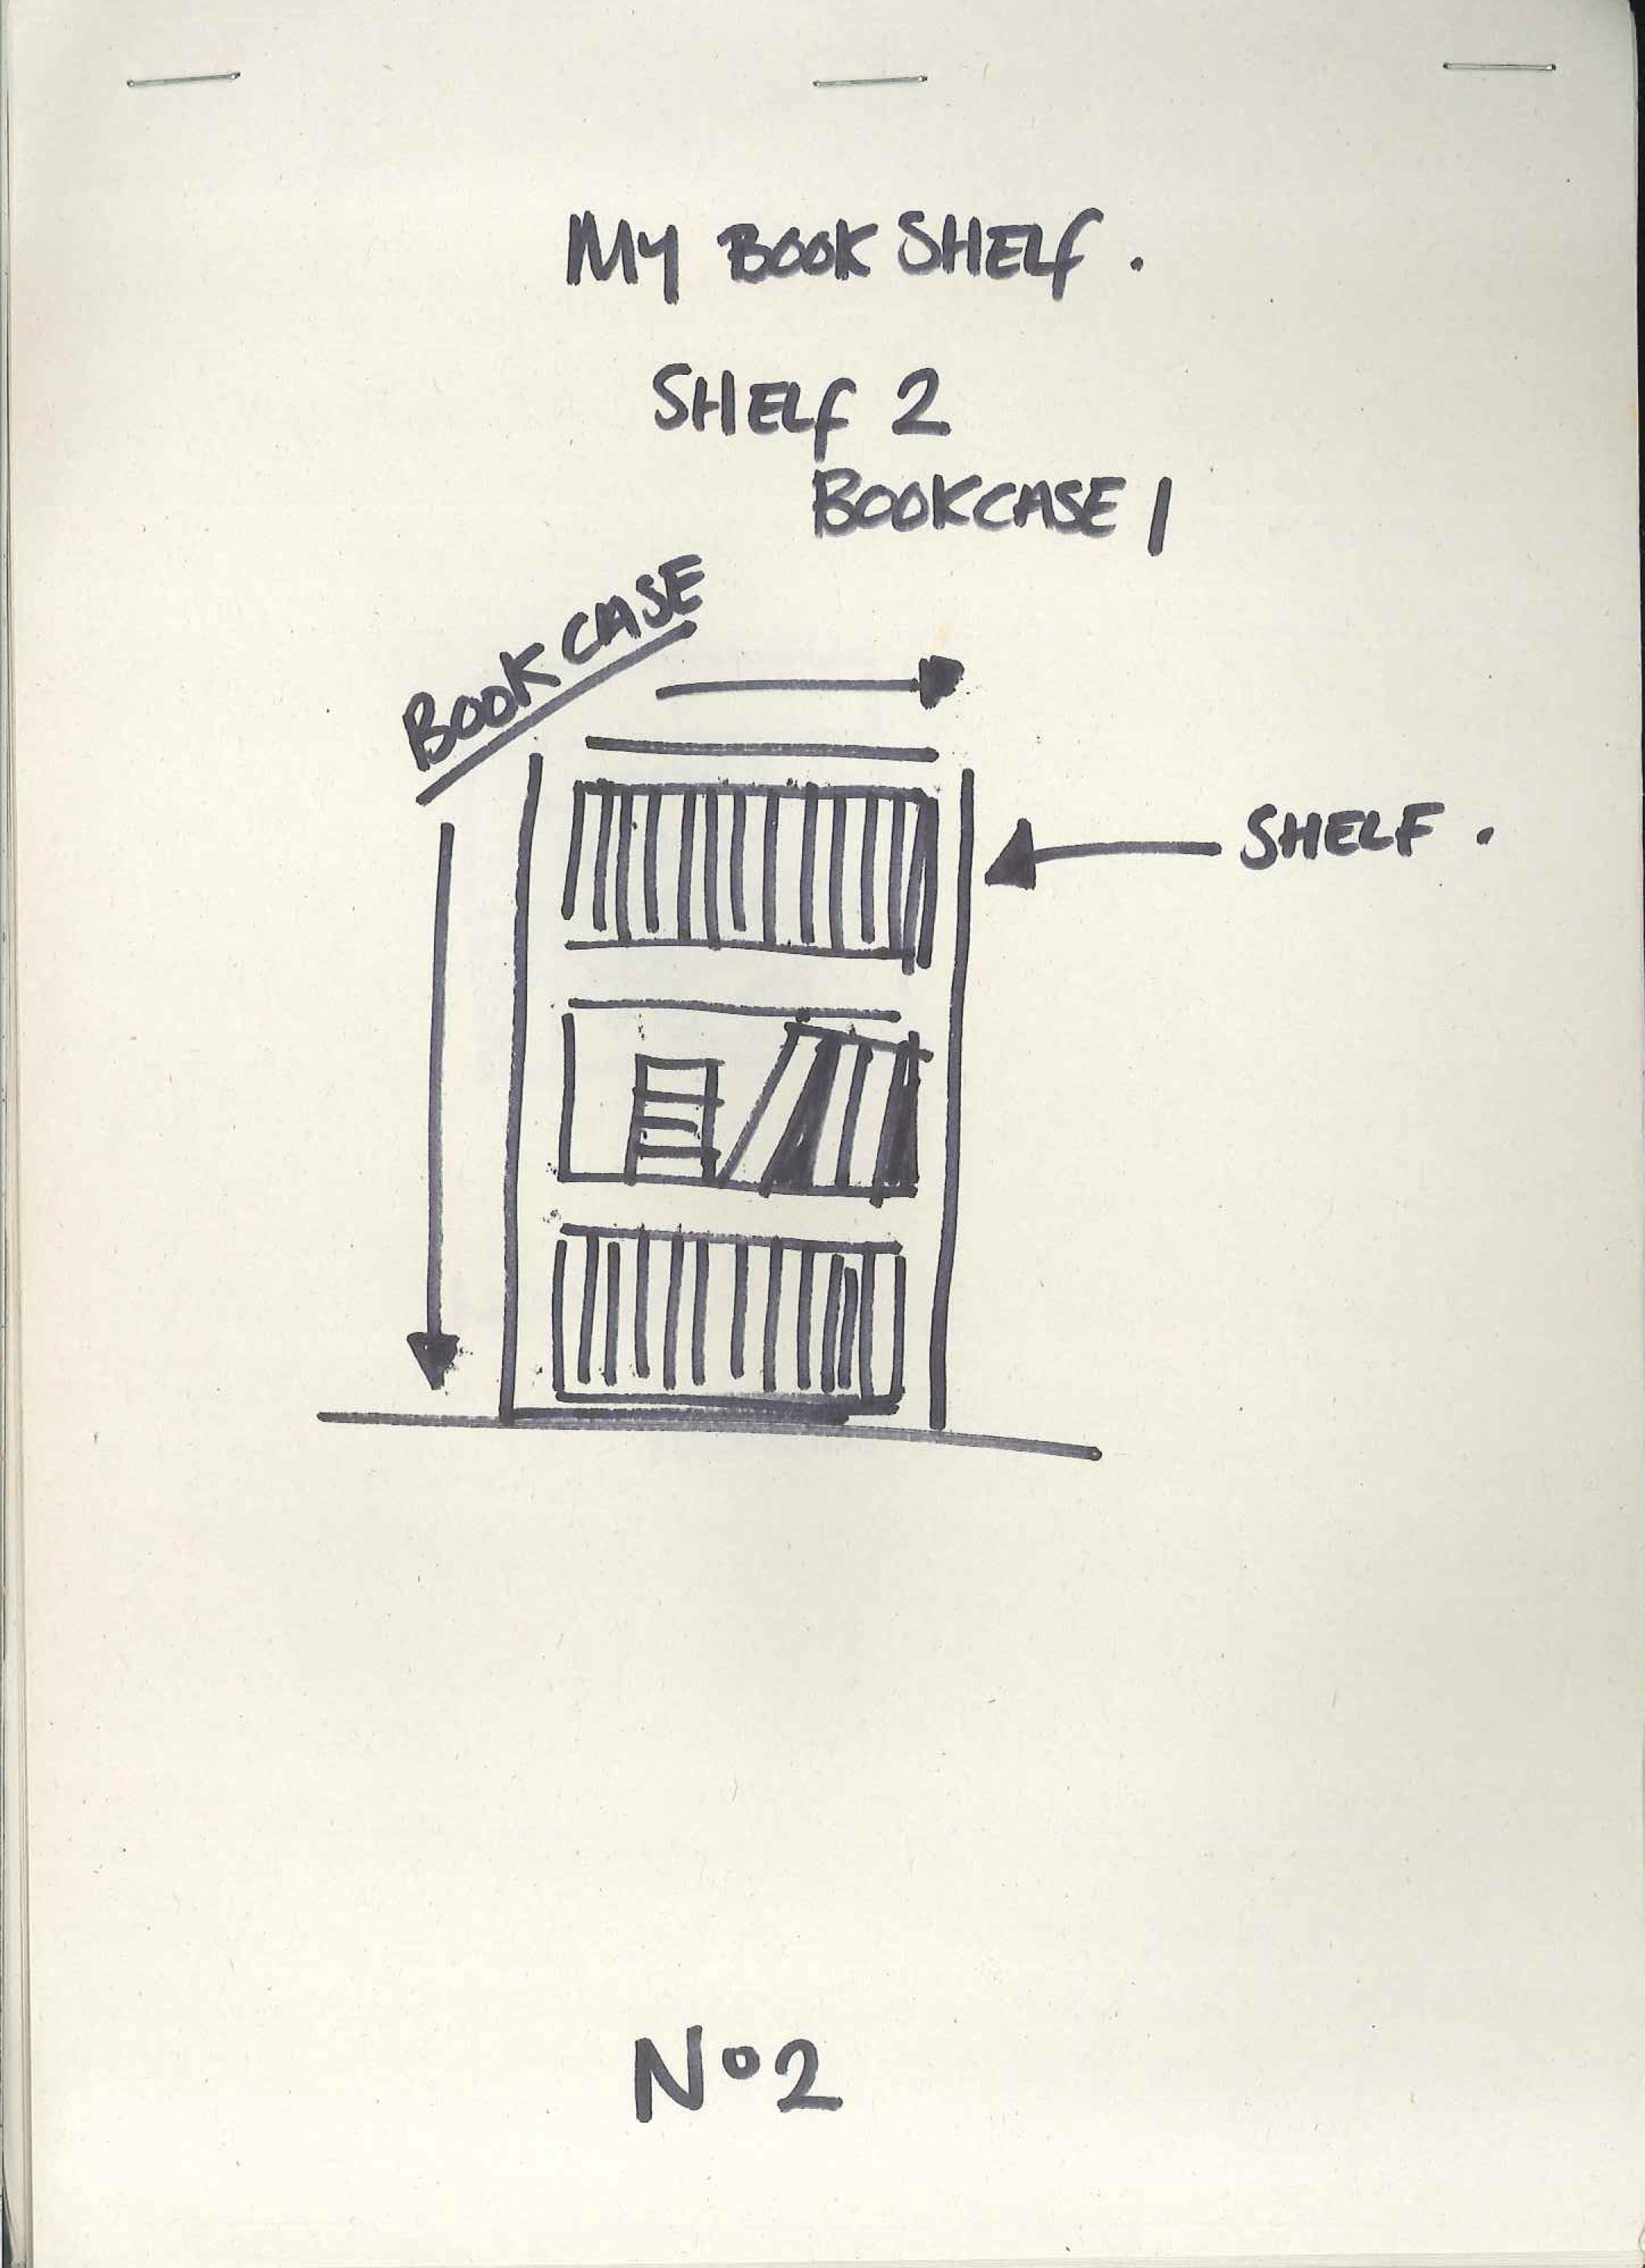 MY BOOK SHELf.
SHELf 2
BOOKCASE 1
BOOK CASE
SHELF.
Nº2